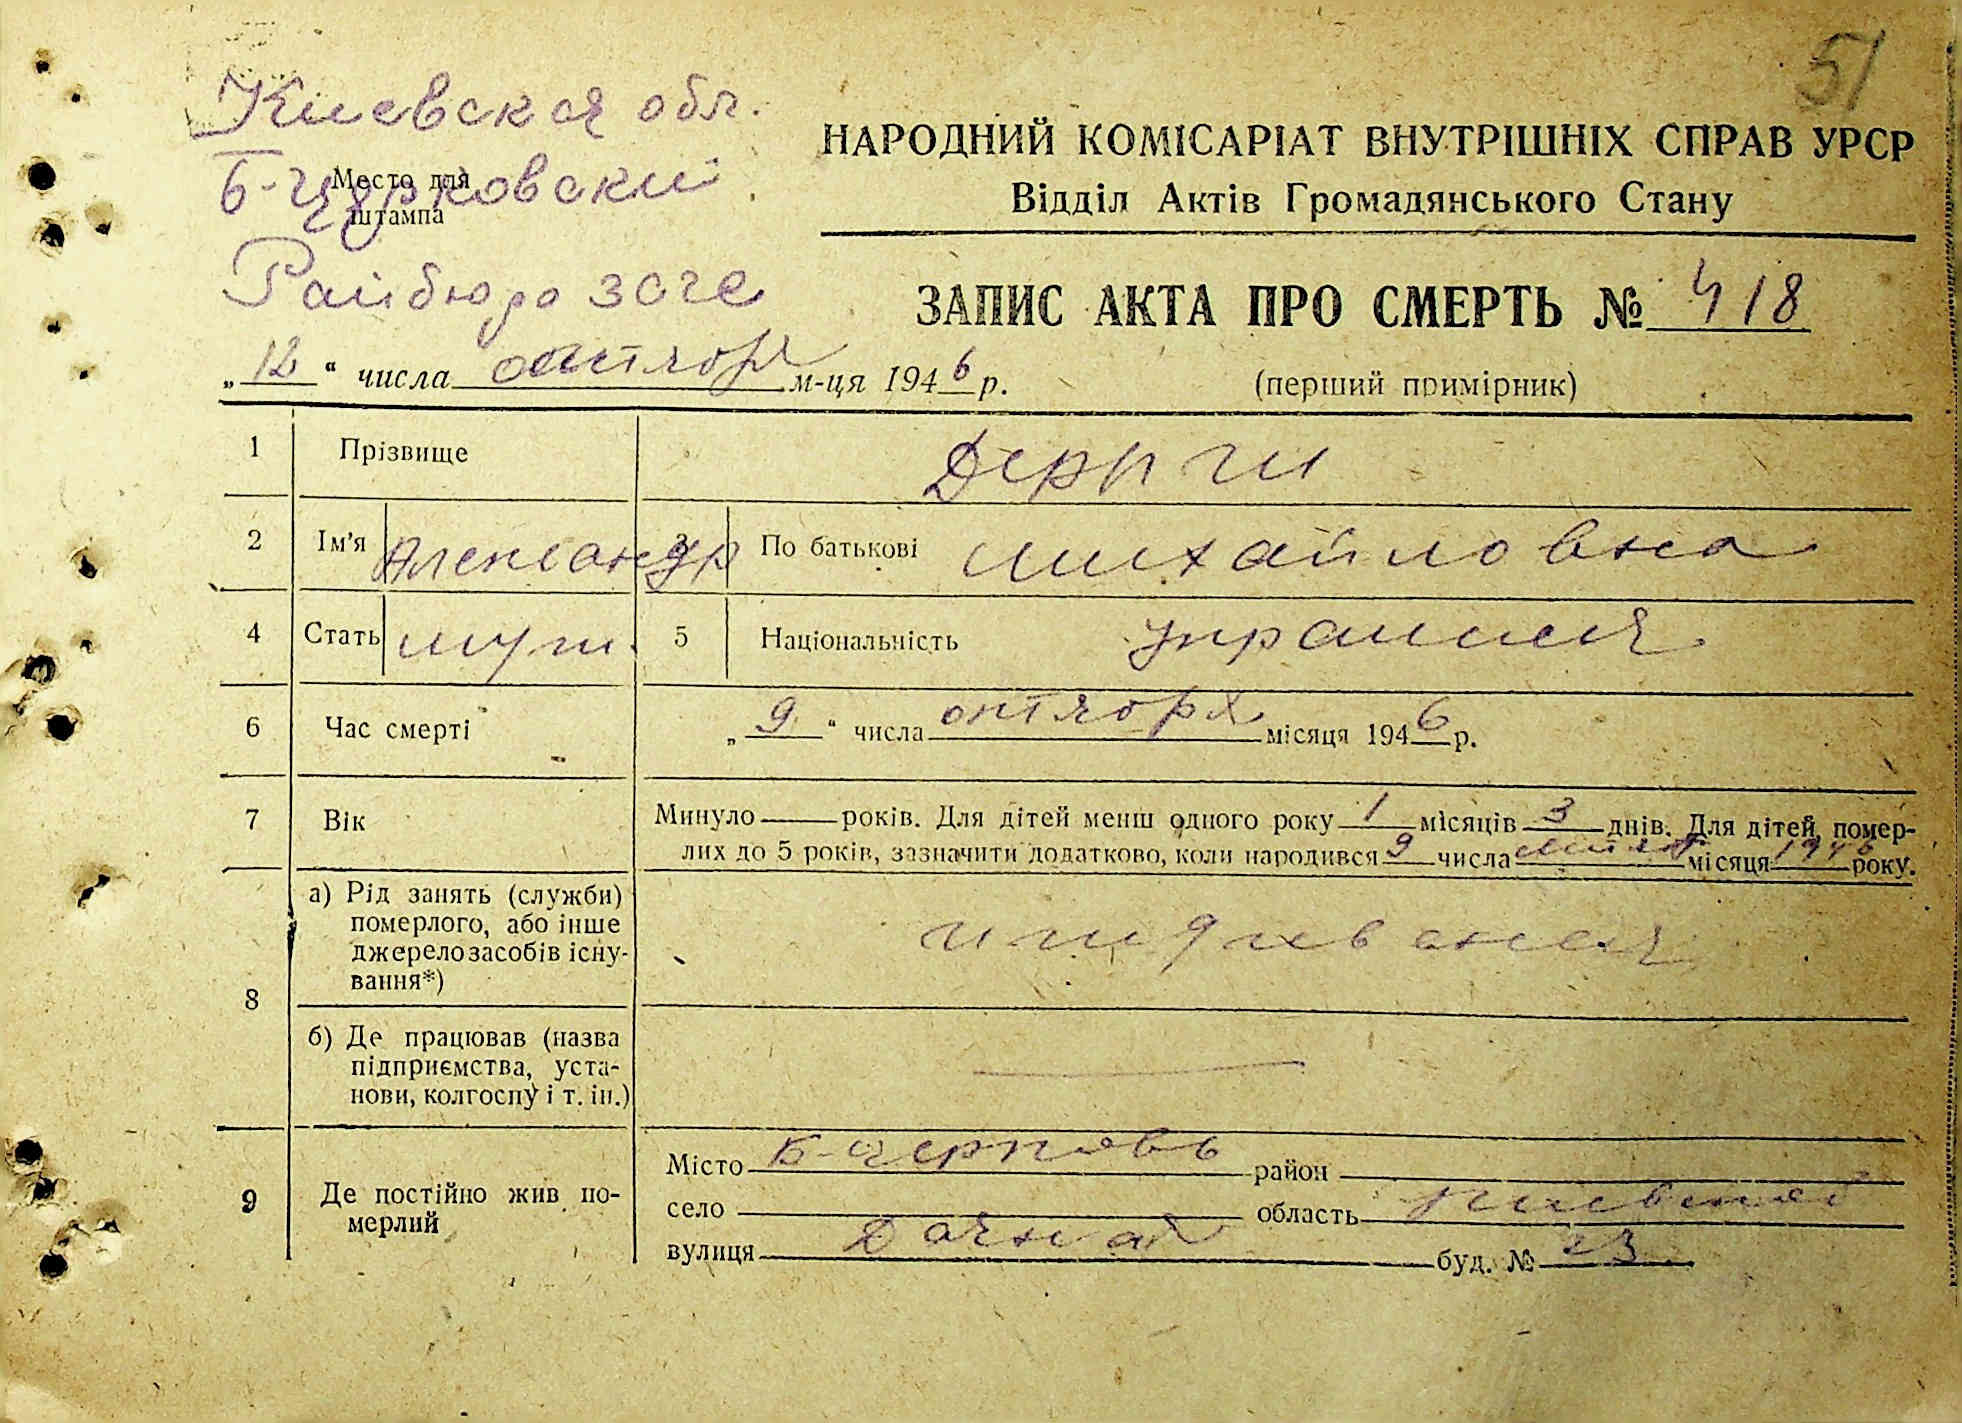 51
Киевская обл.
Б-Церковский
Место для
штампа
Райбюро загс
НАРОДНИЙ КОМІСАРІАТ ВНУТРІШНІХ СПРАВ УРСР
Відділ Актів Громадянського Стану
ЗАПИС АКТА ПРО СМЕРТЬ № 418
„12“ числа октября м-ця 1946 р.
(перший примірник)
1 Прізвище
2 Ім'я Александр 3 По батькові Михайловна
4 Стать муж. 5 Національність
6 Час смерті „9“ числа октября місяця 1946 р.
7 Вік Минуло — років. Для дітей менш одного року 1 місяців 3 днів. Для дітей, помер-
лих до 5 років, зазначити додатково, коли народився 9 числа місяця 1946 року.
8 а) Рід занять (служби)
померлого, або інше
джерело засобів існу-
вання*)
иждивения
б) Де працював (назва
підприємства, уста-
нови, колгоспу і т. ін.) —
9 Де постійно жив по-
мерлий
Місто Б-Церковь район
село область Киевской
вулиця Дачная буд. № 23